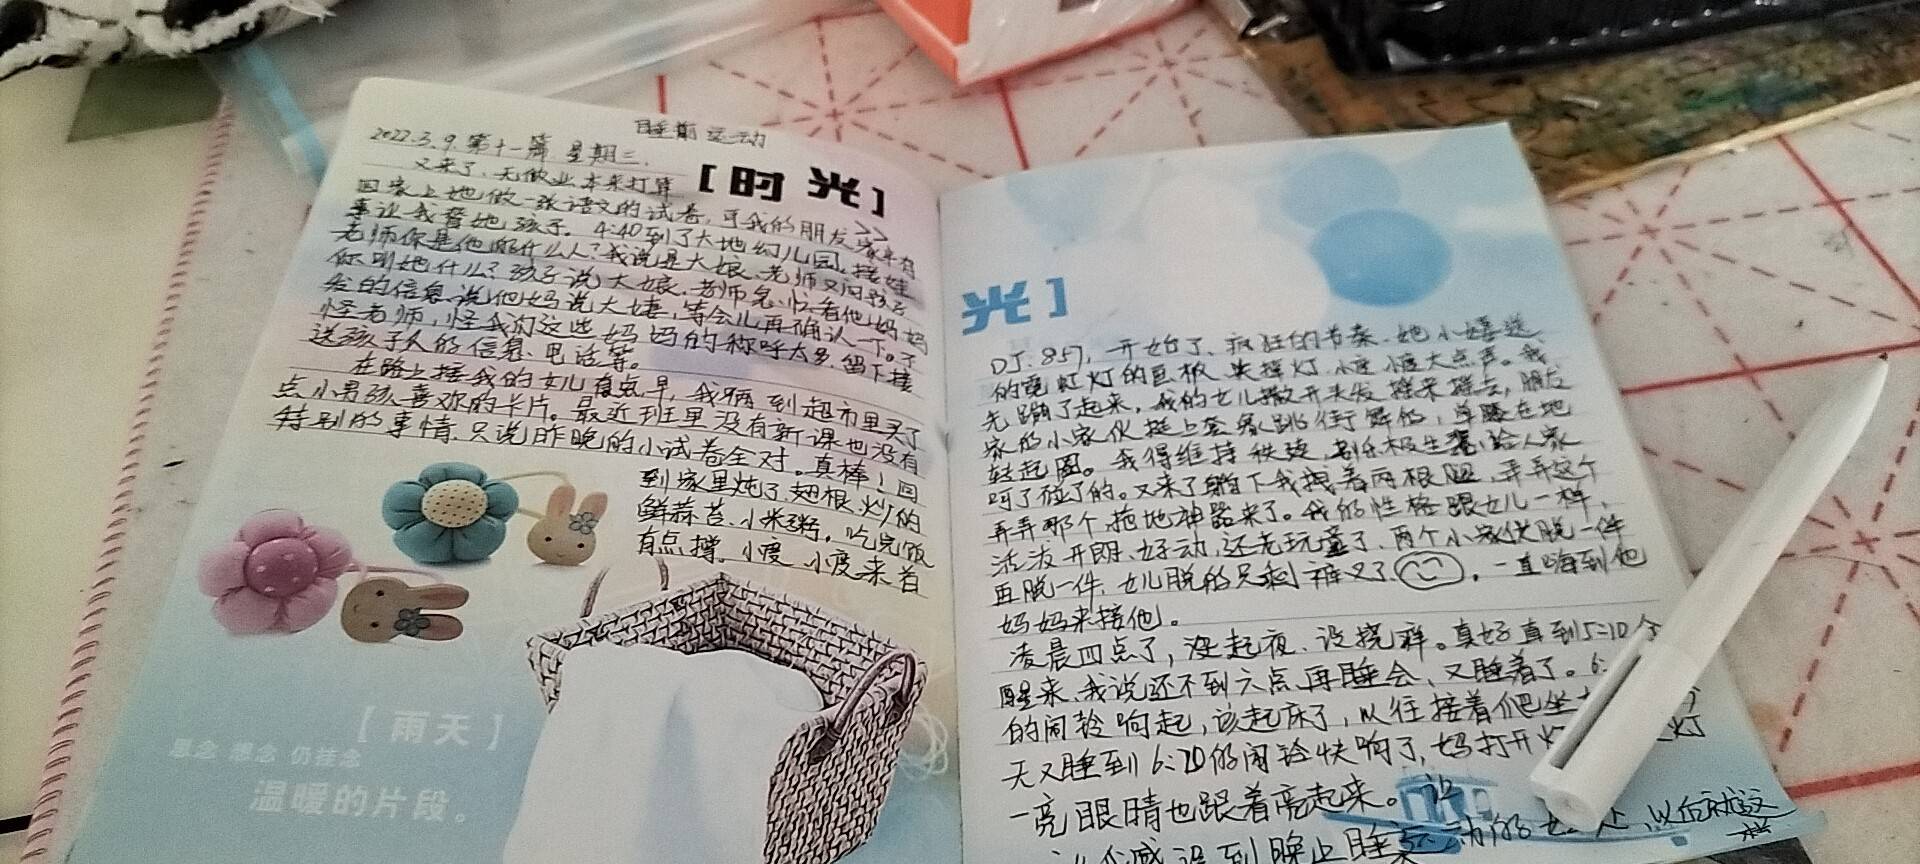 睡前运动
2022.3.9.第十一篇 星期三.
又来了、无做业、本来打算
[时光]
回家上她做一张语文的试卷,可我的朋友家里有
事让我替她孩子。4:40到了大地幼儿园,接娃
老师你是他的什么人?我说是大娘、老师又问孩子
你叫她什么?孩子说大娘、老师急忙看他妈妈
发的信息、说他妈说大婶,等会儿再确认一下。不
怪老师,怪我们这些妈妈的称呼太多,留下接
送孩子人的信息、电话等。
在路上接我的女儿有点早,我俩到超市里买了
点小男孩喜欢的卡片。最近班里没有新课也没有
特别的事情、只说昨晚的小试卷全对。真棒!回
到家里炖了翅根、炒的
鲜蒜苔、小米粥。吃完饭
有点撑、小度小度来首
[雨天]
思念 想念 仍挂念
温暖的片段。
光]
DJ.857,开始了、疯狂的节奏、她小婶送
的霓虹灯的巨板、关掉灯、小度小度大点声。我
先蹦了起来,我的女儿散开头发摇来摇去,朋友
家的小家伙挺上套跳街舞的,单腿在地
转起圈。我得维持秩序,别乐极生悲、给人家
呵了碰了的。又来了躺下我拽着两根腿,弄弄这个
再弄那个,拖地神器来了。我的性格跟女儿一样、
活泼开朗、好动,还老玩童了、两个小家伙脱一件
再脱一件、女儿脱的只剩裤叉了。一直嗨到他
妈妈来接他。
凌晨四点了,没起夜、没挠痒。真好直到5:10分
醒来、我说还不到六点、再睡会、又睡着了。6:
的闹铃响起,该起床了,以往接着爬坐
天又睡到6:20的闹铃快响了,妈打开灯 灯
一亮眼睛也跟着亮起来。让
减 到晚上睡 运动的 处、以后就这
样